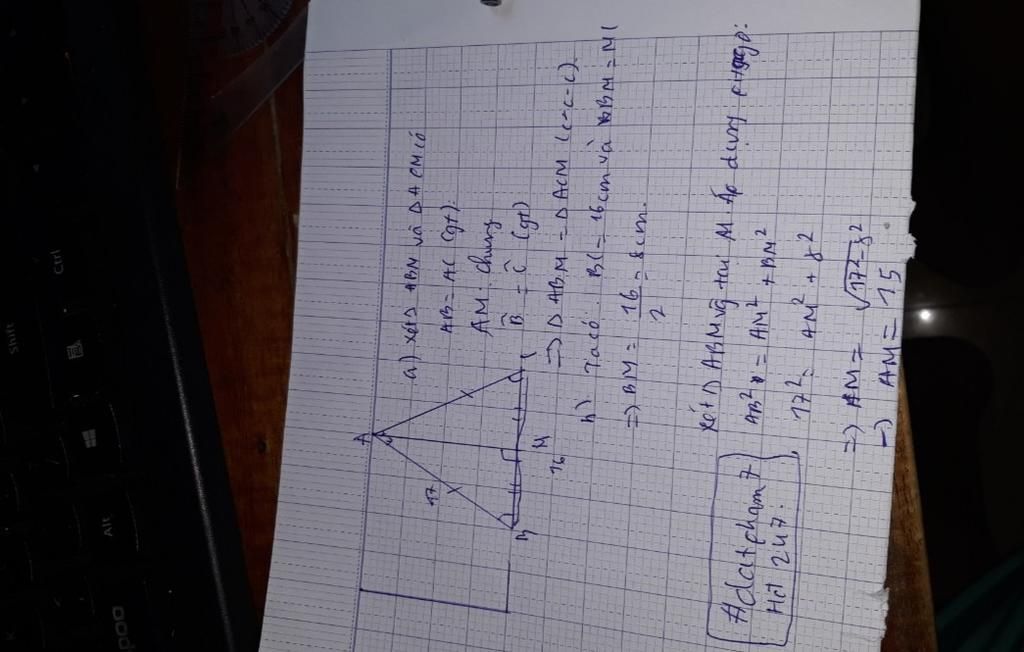 A
17
B
M
C
16
a) Xét Δ ABM và Δ ACM có
AB = AC (gt).
AM chung
B̂ = Ĉ (gt)
=> Δ ABM = Δ ACM (c-c-c).
b) Ta có BC = 16cm và BM = MC
=> BM = 16/2 = 8cm.
Xét Δ ABM vg tại M. Áp dụng pitago:
AB² = AM² + BM²
17² = AM² + 8²
=> AM = √17²-8²
=> AM = 15
Adatpham7
Hđ 247.
Shift
Ctrl
Alt